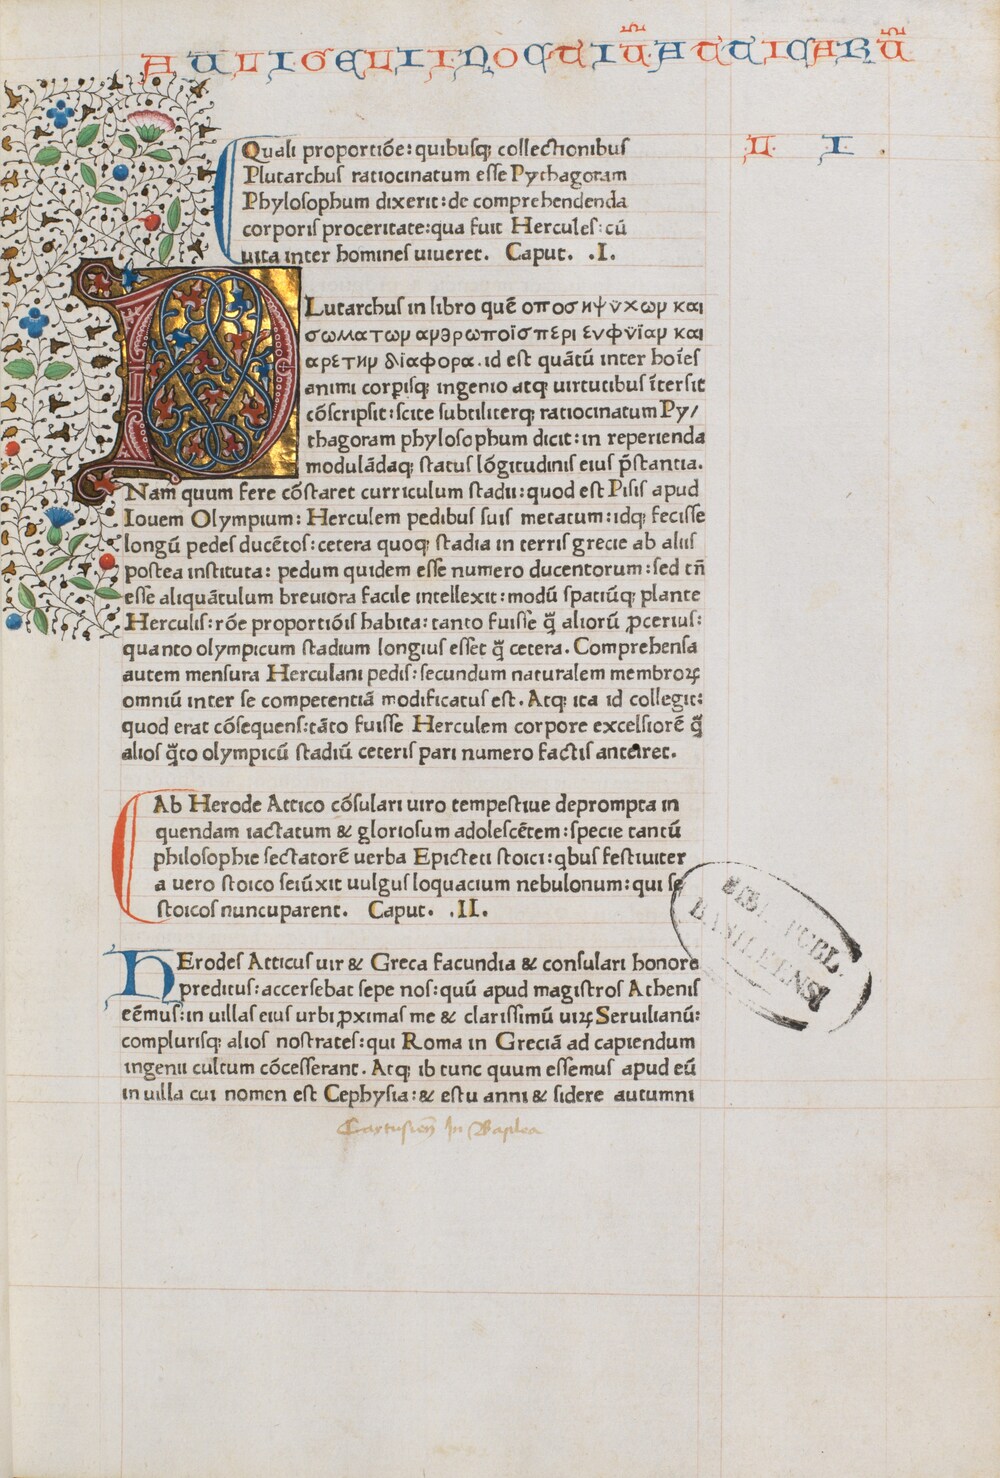 AULI GELII NOCTIŪ ATTICARŪ
Quali proportiōe: quibusq; collectionibus
L. I.
Plutarchus ratiocinatum esse Pythagoram
Phylosophum dixerit: de comprehendenda
corporis proceritate: qua fuit Hercules: cū
uita inter homines uiueret. Caput. .I.
PLutarchus in libro quē οποσηψυχων και
σωματων ανθρωποϊσ περι ευφυϊαν και
αρετην διαφορα. id est quātū inter hoīes
animi corpīsq; ingenio atq; uirtutibus ītersit
cōscripsit: scite subtiliterq; ratiocinatum Py/
thagoram phylosophum dicit: in reperienda
modulādaq; status lōgitudinis eius p̄stantia.
Nam quum fere cōstaret curriculum stadii: quod est Pisis apud
Iouem Olympium: Herculem pedibus suis metatum: idq; fecisse
longū pedes ducētos: cetera quoq; stadia in terris grecie ab aliis
postea instituta: pedum quidem esse numero ducentorum: sed tn̄
esse aliquātulum breuiora facile intellexit: modū spatiūq; plante
Herculis: rōe proportiōis habita: tanto fuisse q̄ aliorū ꝓcerius:
quanto olympicum stadium longius esset q̄ cetera. Comprehensa
autem mensura Herculani pedis: secundum naturalem membroꝝ
omniū inter se competentiā modificatus est. Atq; ita id collegit:
quod erat cōsequens: tāto fuisse Herculem corpore excelsiorē q̄
alios q̄to olympicū stadiū ceteris pari numero factis anteiret.
Ab Herode Attico cōsulari uiro tempestiue deprompta in
quendam iactatum & gloriosum adolescētem: specie tantū
philosophie sectatorē uerba Epicteti stoici: qbus festiuiter
a uero stoico seiūxit uulgus loquacium nebulonum: qui se
stoicos nuncuparent. Caput. .II.
HErodes Atticus uir & Greca facundia & consulari honore
preditus: accersebat sepe nos: quū apud magistros Athenis
eēmus: in uillas eius urbi ꝓximas me & clarissimū uiꝝ Seruilianū:
complurisq; alios nostrates: qui Roma in Greciā ad capiendum
ingenii cultum cōcesserant. Atq; ib tunc quum essemus apud eū
in uilla cui nomen est Cephysia: & estu anni & sidere autumni
Cartusien̄ In Basilea
BIBL. PUBL.
BASILEENSI